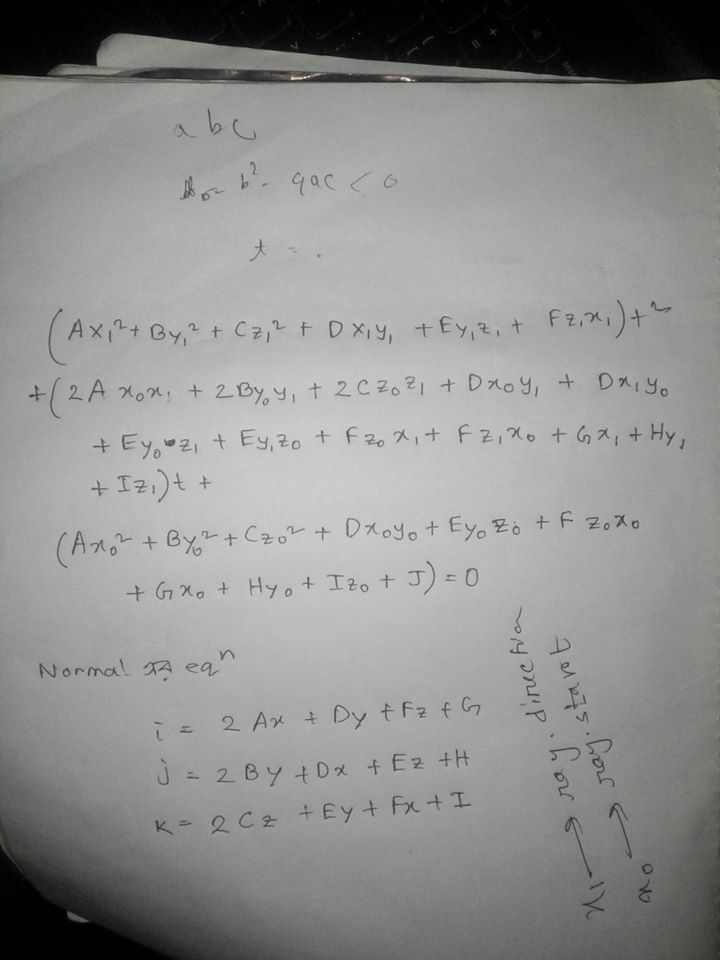 a b c
b² - 4ac < 0
t = .
(Ax₁² + By₁² + Cz₁² + Dx₁y₁ + Ey₁z₁ + Fz₁x₁)t²
+ (2Ax₀x₁ + 2By₀y₁ + 2Cz₀z₁ + Dx₀y₁ + Dx₁y₀
+ Ey₀z₁ + Ey₁z₀ + Fz₀x₁ + Fz₁x₀ + Gx₁ + Hy₁
+ Iz₁)t +
(Ax₀² + By₀² + Cz₀² + Dx₀y₀ + Ey₀z₀ + Fz₀x₀
+ Gx₀ + Hy₀ + Iz₀ + J) = 0
Normal এর eqⁿ
i = 2Ax + Dy + Fz + G
j = 2By + Dx + Ez + H
k = 2Cz + Ey + Fx + I
x₁ → ray.direction
x₀ → ray.start